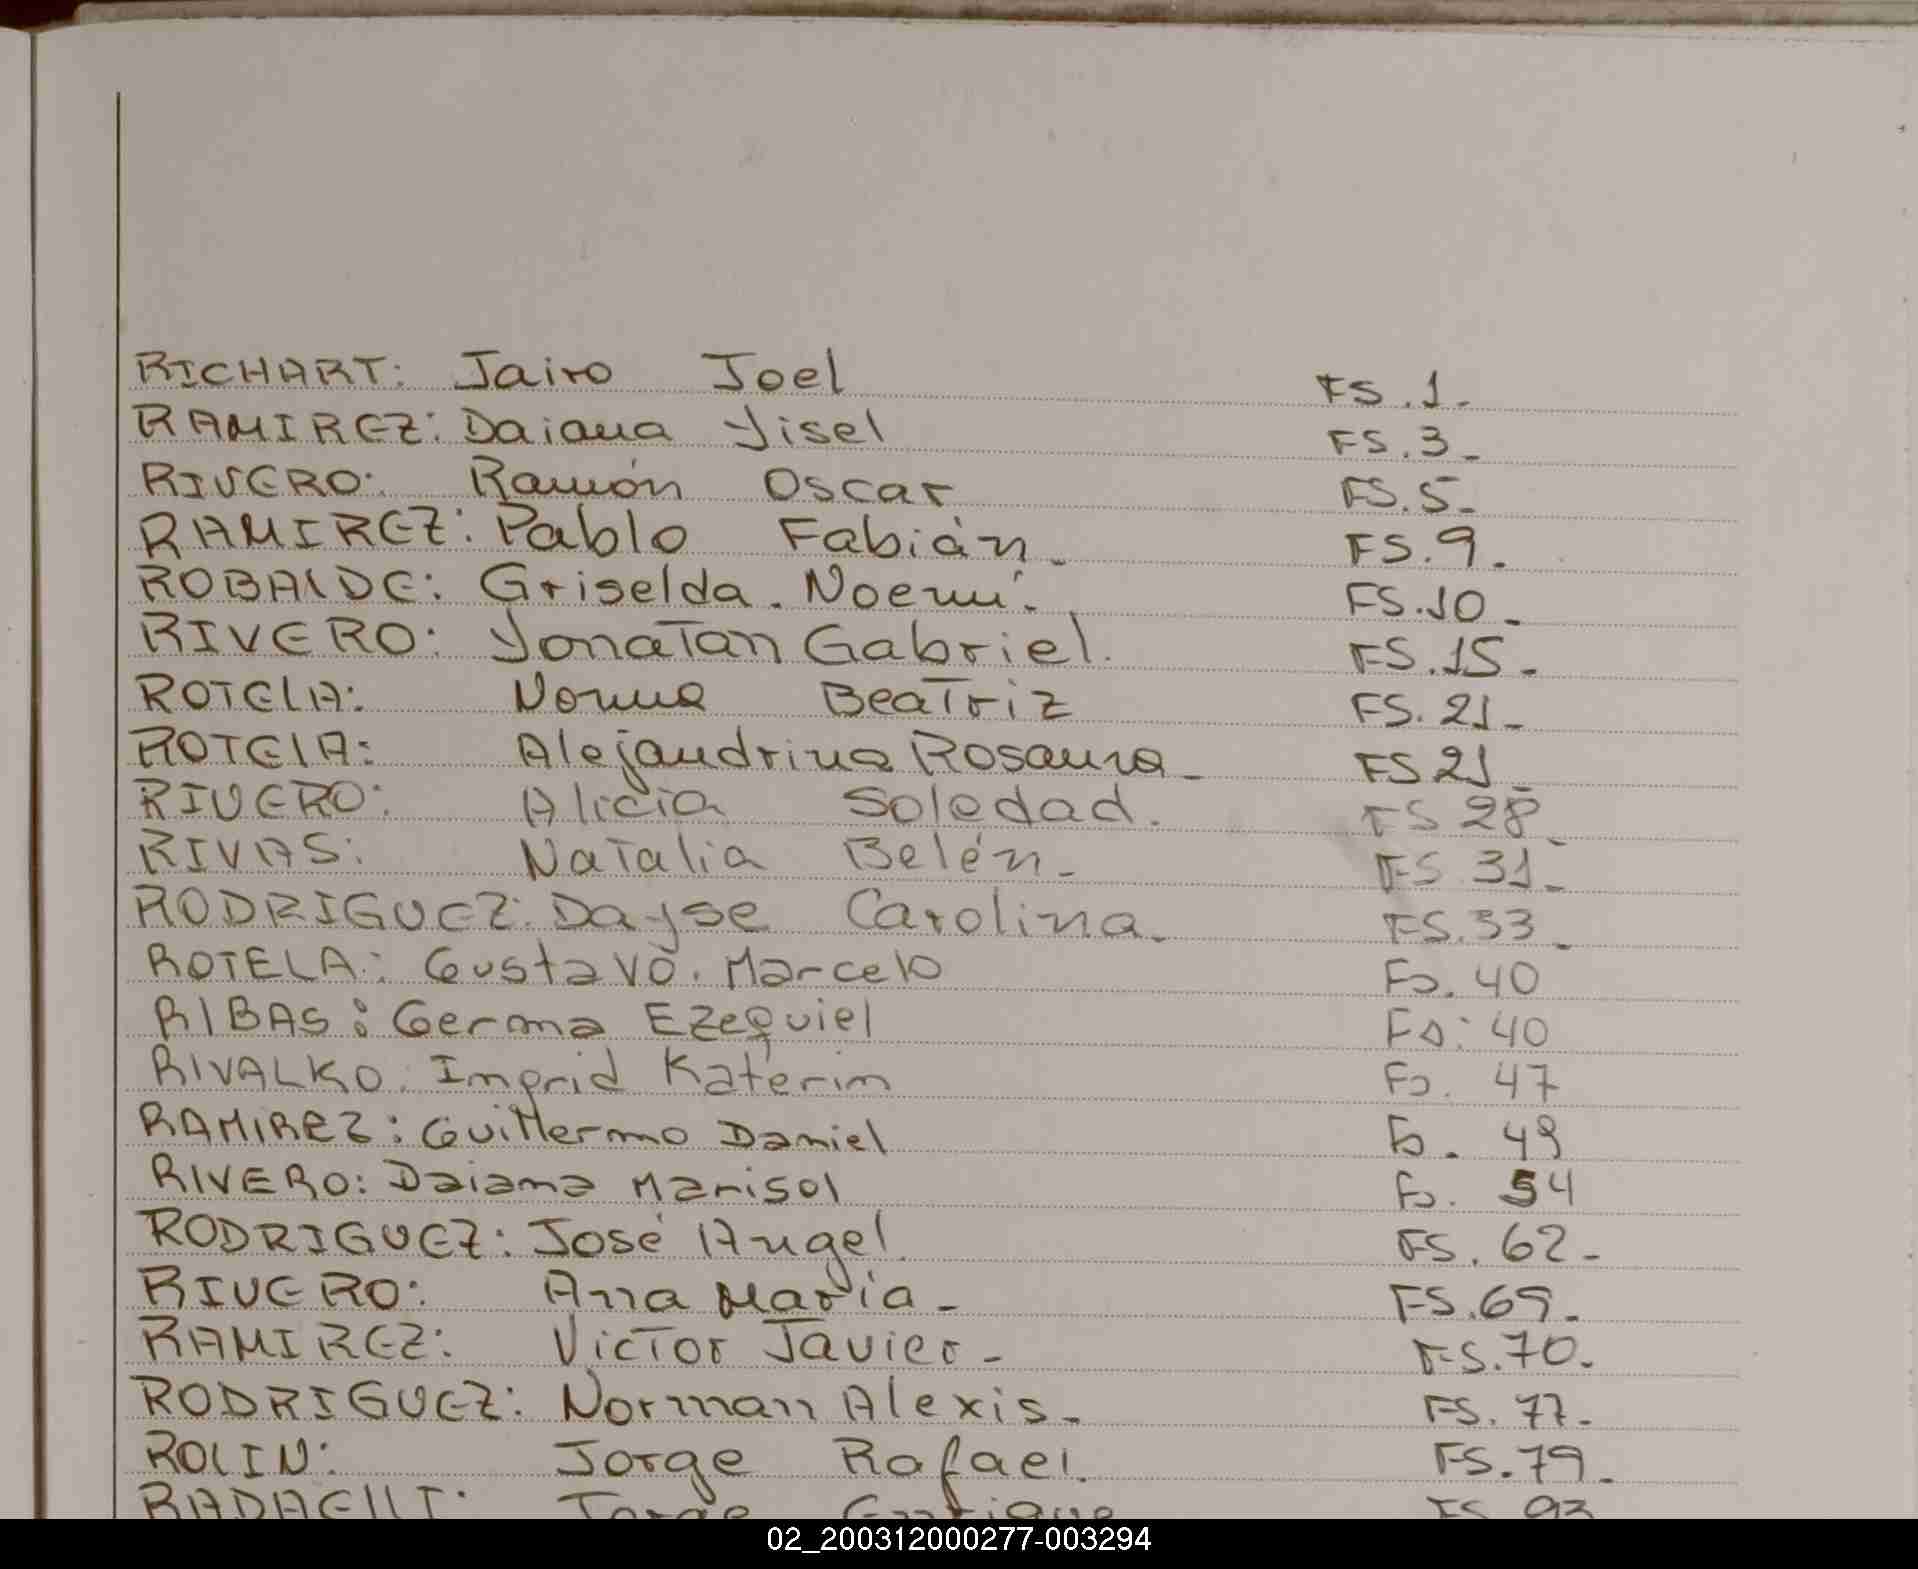 RICHART: Jairo Joel FS.1-
RAMIREZ: Daiana Yisel FS.3-
RIVERO: Ramón Oscar FS.5-
RAMIREZ: Pablo Fabián- FS.9-
ROBALDE: Griselda. Noemí. FS.10-
RIVERO: Yonatan Gabriel. FS.15-
ROTELA: Norma Beatriz FS.21-
ROTELA: Alejandrina Rosaura- FS 21-
RIVERO: Alicia Soledad. FS 28-
RIVAS: Natalia Belén- FS 31-
RODRIGUEZ: Dayse Carolina- FS.33-
ROTELA: Gustavo. Marcelo Fs. 40
RIBAS: Germa Ezequiel Fs: 40
RIVALKO. Ingrid Katerin Fs. 47
RAMIREZ: Guillermo Daniel Fs. 49
RIVERO: Daiana Marisol Fs. 54
RODRIGUEZ: José Angel. FS. 62-
RIVERO: Ana María- FS.69-
RAMIREZ: Victor Javier- FS.70.
RODRIGUEZ: Norman Alexis- FS. 77-
ROLIN: Jorge Rafael. FS.79-
Jorge Enrique FS 93
02_200312000277-003294